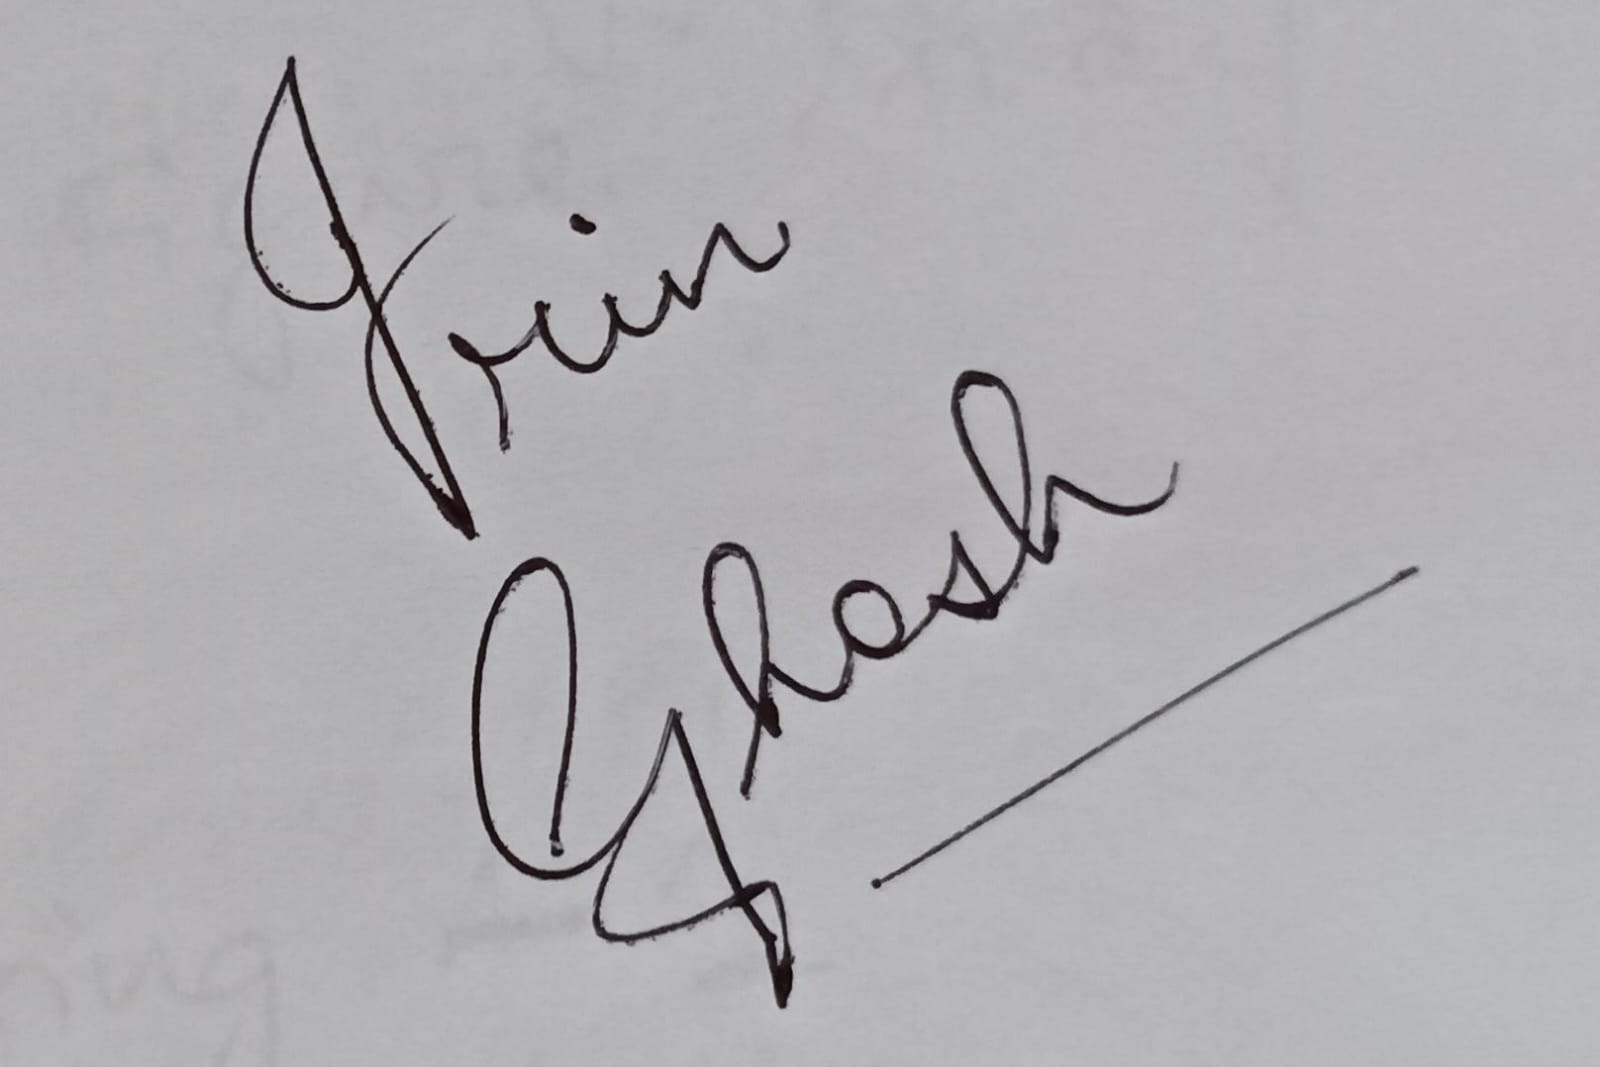 Irin
Ghosh